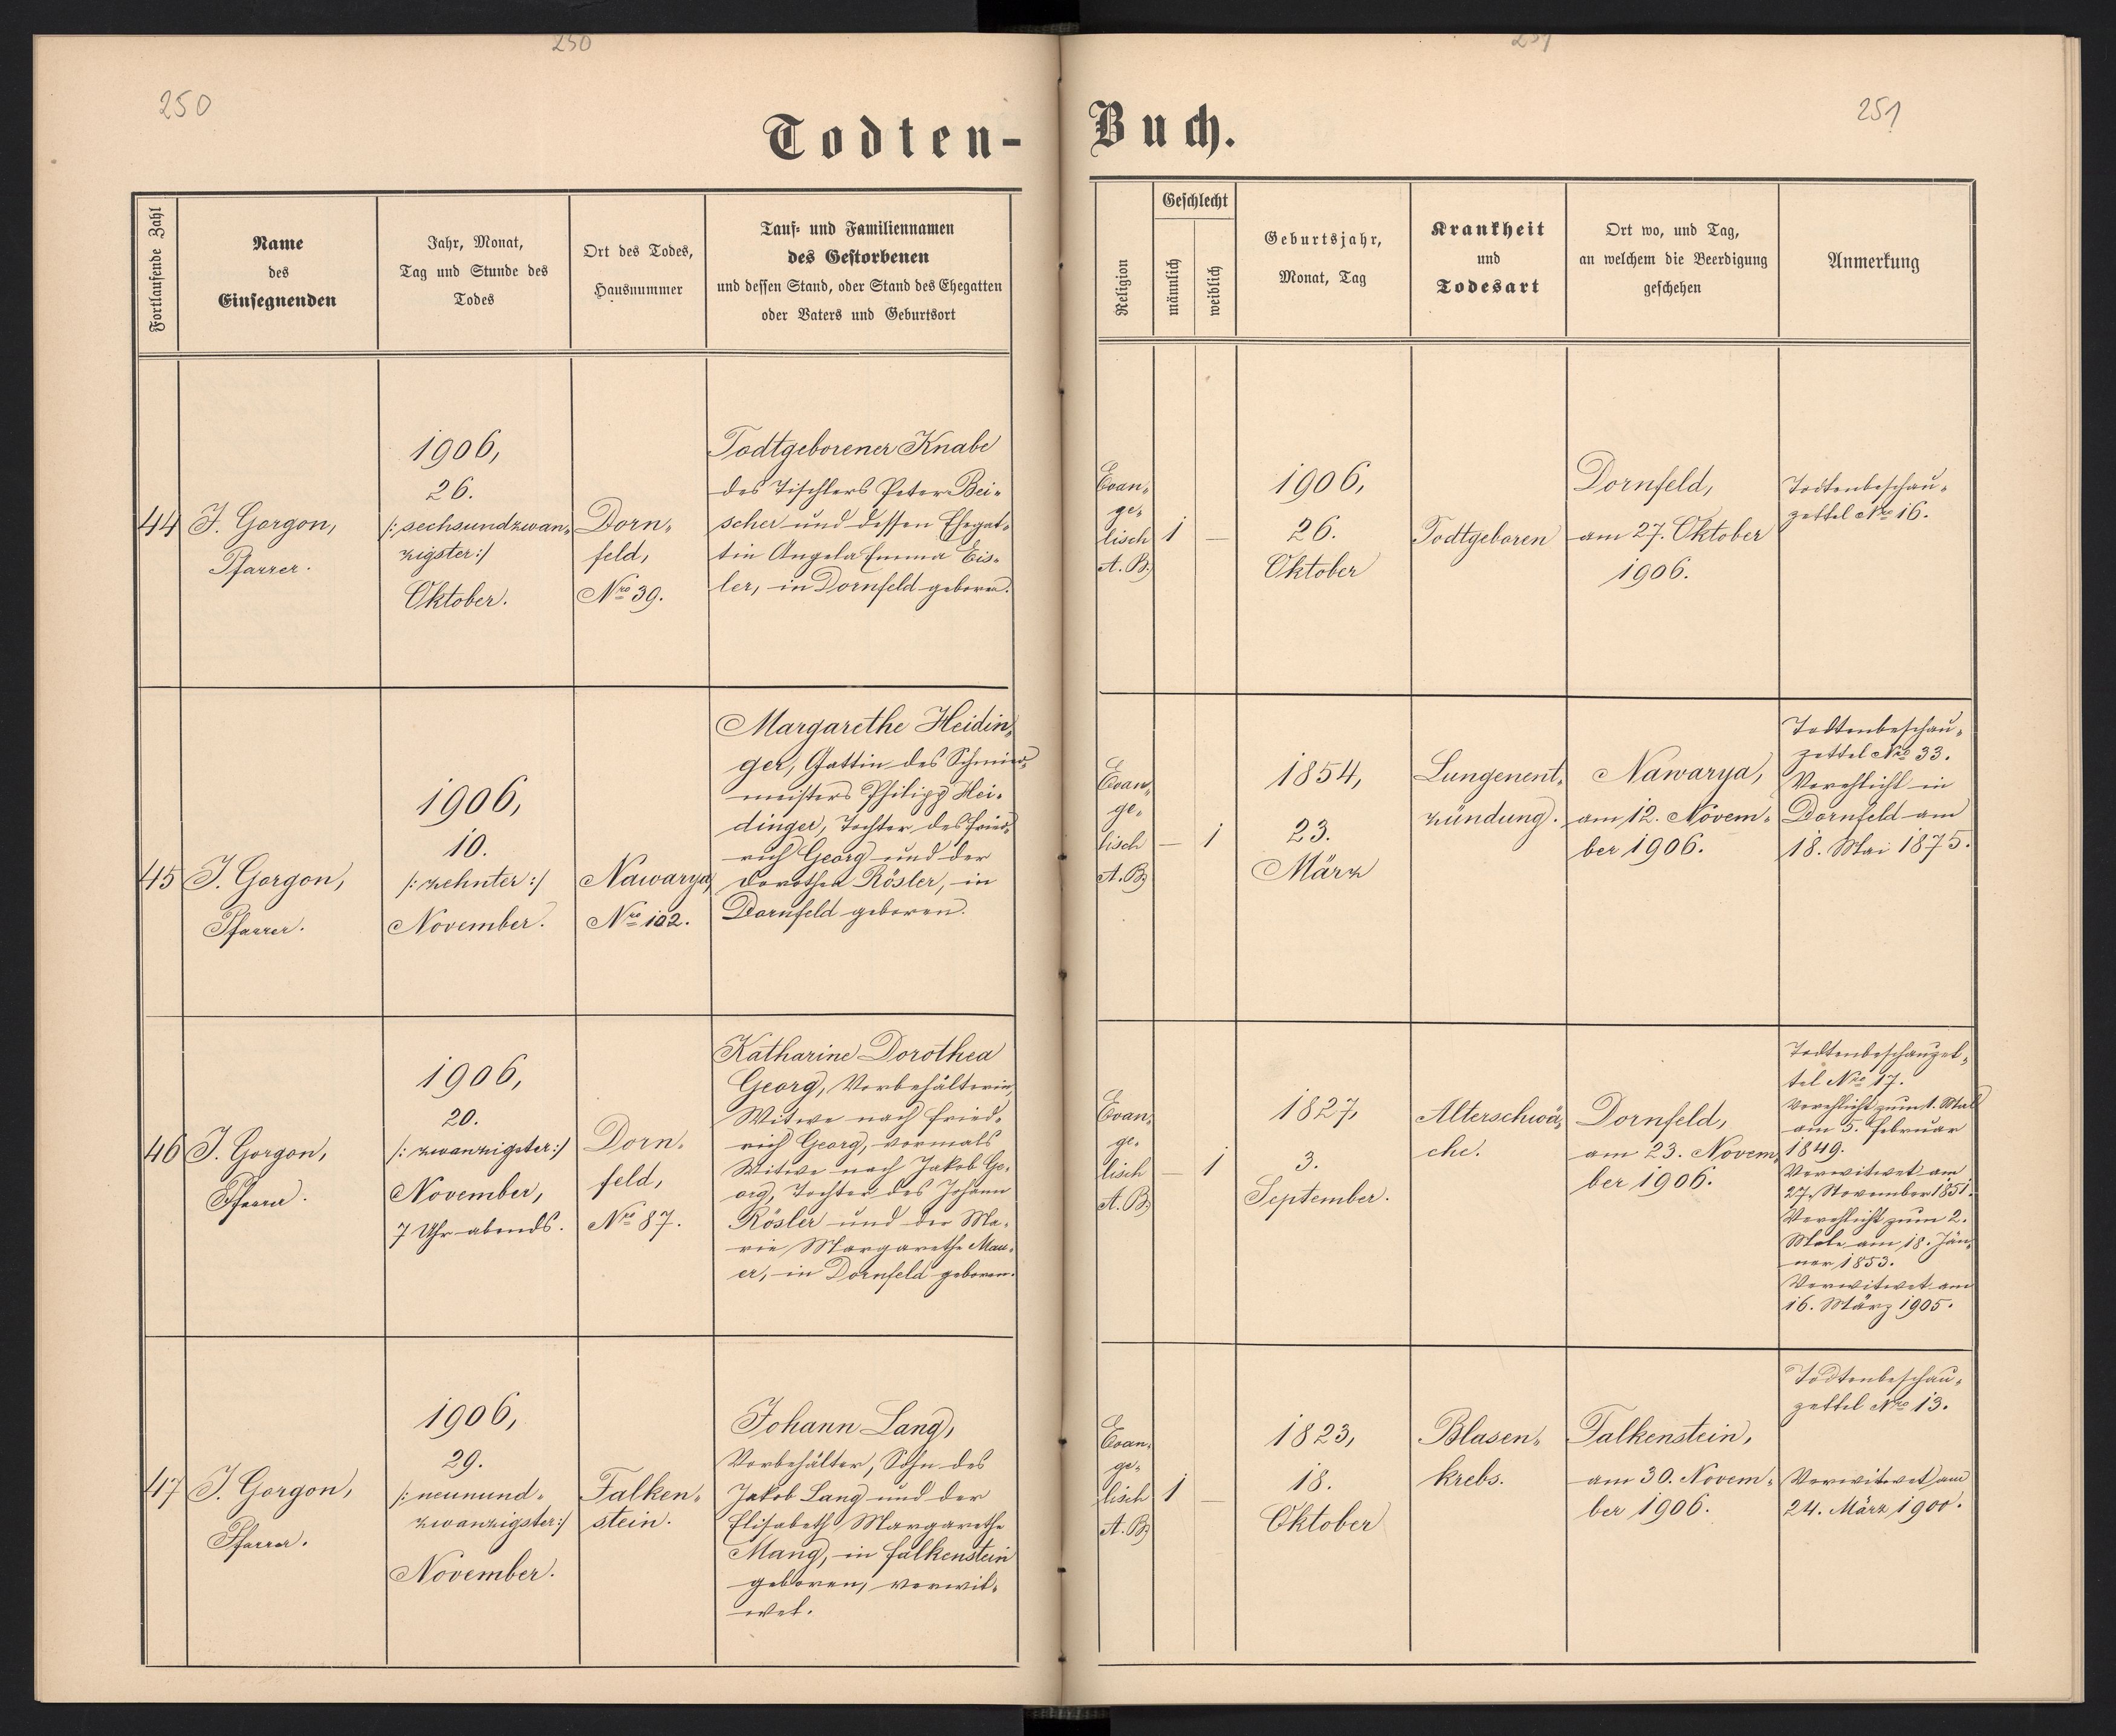 250
251
250
251
Todten-
Buch.
Fortlaufende Zahl
Name
des
Einsegnenden
Jahr, Monat,
Tag und Stunde des
Todes
Ort des Todes,
Hausnummer
Tauf- und Familiennamen
des Gestorbenen
und dessen Stand, oder Stand des Ehegatten
oder Vaters und Geburtsort
Religion
Geschlecht
männlich
weiblich
Geburtsjahr,
Monat, Tag
Krankheit
und
Todesart
Ort wo, und Tag,
an welchem die Beerdigung
geschehen
Anmerkung
44
J. Gorgon,
Pfarrer.
1906,
26.
/: sechsundzwan-
zigster :/
Oktober.
Dorn-
feld,
Nro 39.
Todtgeborener Knabe
des Tischlers Peter Bei-
scher und dessen Ehegat-
tin Angela Emma Eis-
ler, in Dornfeld geboren.
Evan-
ge-
lisch
A. B.
1
—
1906,
26.
Oktober
Todtgeboren
Dornfeld,
am 27. Oktober
1906.
Todtenbeschau-
zettel Nro 16.
45
J. Gorgon,
Pfarrer.
1906,
10.
/: zehnter :/
November.
Nawarya,
Nro 102.
Margarethe Heidin-
ger, Gattin des Schmied-
meisters Philipp Hei-
dinger, Tochter des Fried-
rich Georg und der
Dorothea Rösler, in
Dornfeld geboren.
Evan-
ge-
lisch
A. B.
—
1
1854,
23.
März
Lungenent-
zündung.
Nawarya,
am 12. Novem-
ber 1906.
Todtenbeschau-
zettel Nro 33.
Verehlicht in
Dornfeld am
18. Mai 1875.
46
J. Gorgon,
Pfarrer.
1906,
20.
/: zwanzigster :/
November,
7 Uhr abends.
Dorn-
feld,
Nro 87.
Katharine Dorothea
Georg, Vorbehälterin,
Witwe nach Fried-
rich Georg, vormals
Witwe nach Jakob Ge-
org, Tochter des Johann
Rösler und der Ma-
rie Margarethe Mau-
er, in Dornfeld geboren.
Evan-
ge-
lisch
A. B.
—
1
1827,
3.
September.
Alterschwä-
che.
Dornfeld,
am 23. Novem-
ber 1906.
Todtenbeschauzet-
tel Nro 17.
Verehlicht zum 1. Mal
am 5. Februar
1849.
Verwitwet am
27. November 1851.
Verehlicht zum 2.
Male am 18. Jän-
ner 1853.
Verwitwet am
16. März 1905.
47
J. Gorgon,
Pfarrer.
1906,
29.
/: neunund-
zwanzigster :/
November.
Falken-
stein.
Johann Lang,
Vorbehälter, Sohn des
Jakob Lang und der
Elisabeth Margarethe
Mang, in Falkenstein
geboren, verwit-
wet.
Evan-
ge-
lisch
A. B.
1
—
1823,
18.
Oktober
Blasen-
krebs.
Falkenstein,
am 30. Novem-
ber 1906.
Todtenbeschau-
zettel Nro 13.
Verwitwet am
24. März 1900.